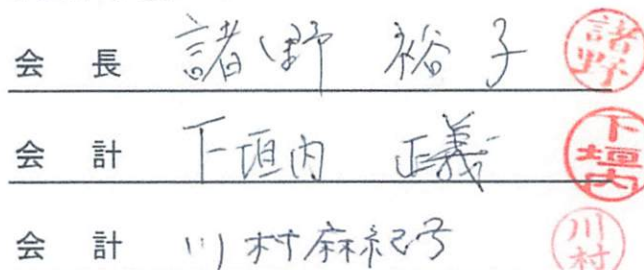 会長 諸野 裕子 諸野
会計 下垣内 正義 下垣内
会計 川村麻紀子 川村